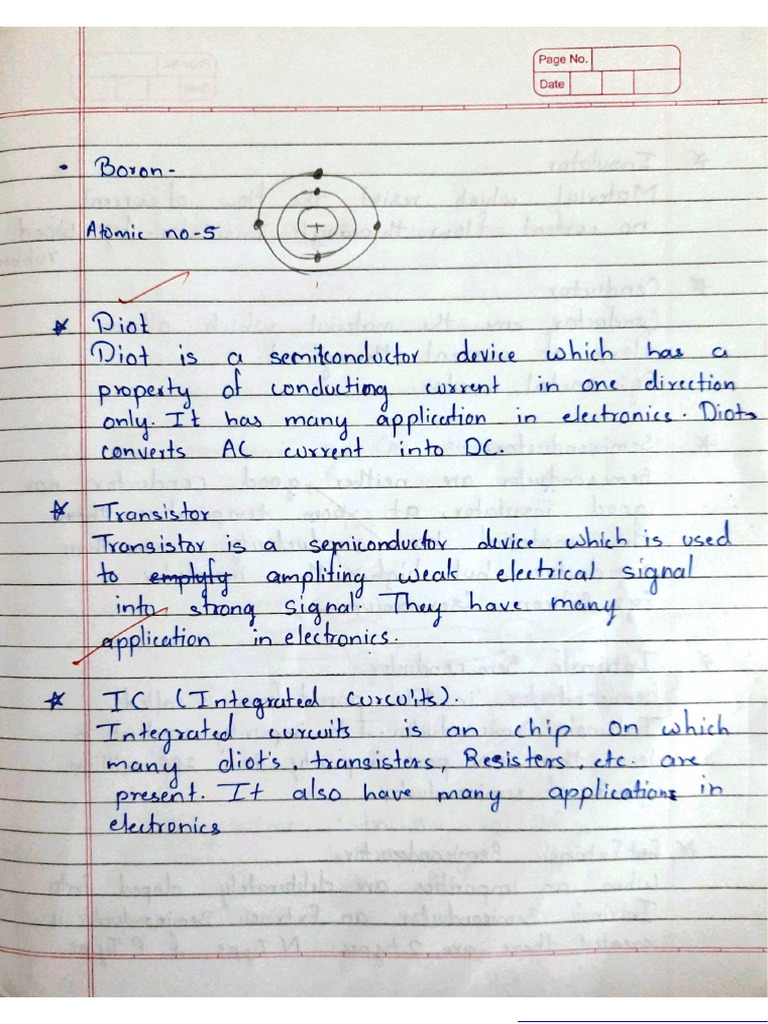 Page No.
Date
• Boron -
Atomic no-5
+
* Diot
Diot is a semiconductor device which has a
property of conducting current in one direction
only. It has many application in electronics. Diot
converts AC current into DC.
* Transistor
Transistor is a semiconductor device which is used
to emplyfy amplifing weak electrical signal
into strong signal. They have many
application in electronics.
* IC (Integrated curcuits).
Integrated curcuits is an chip on which
many diot's, transisters, Resisters, etc. are
present. It also have many applications in
electronics